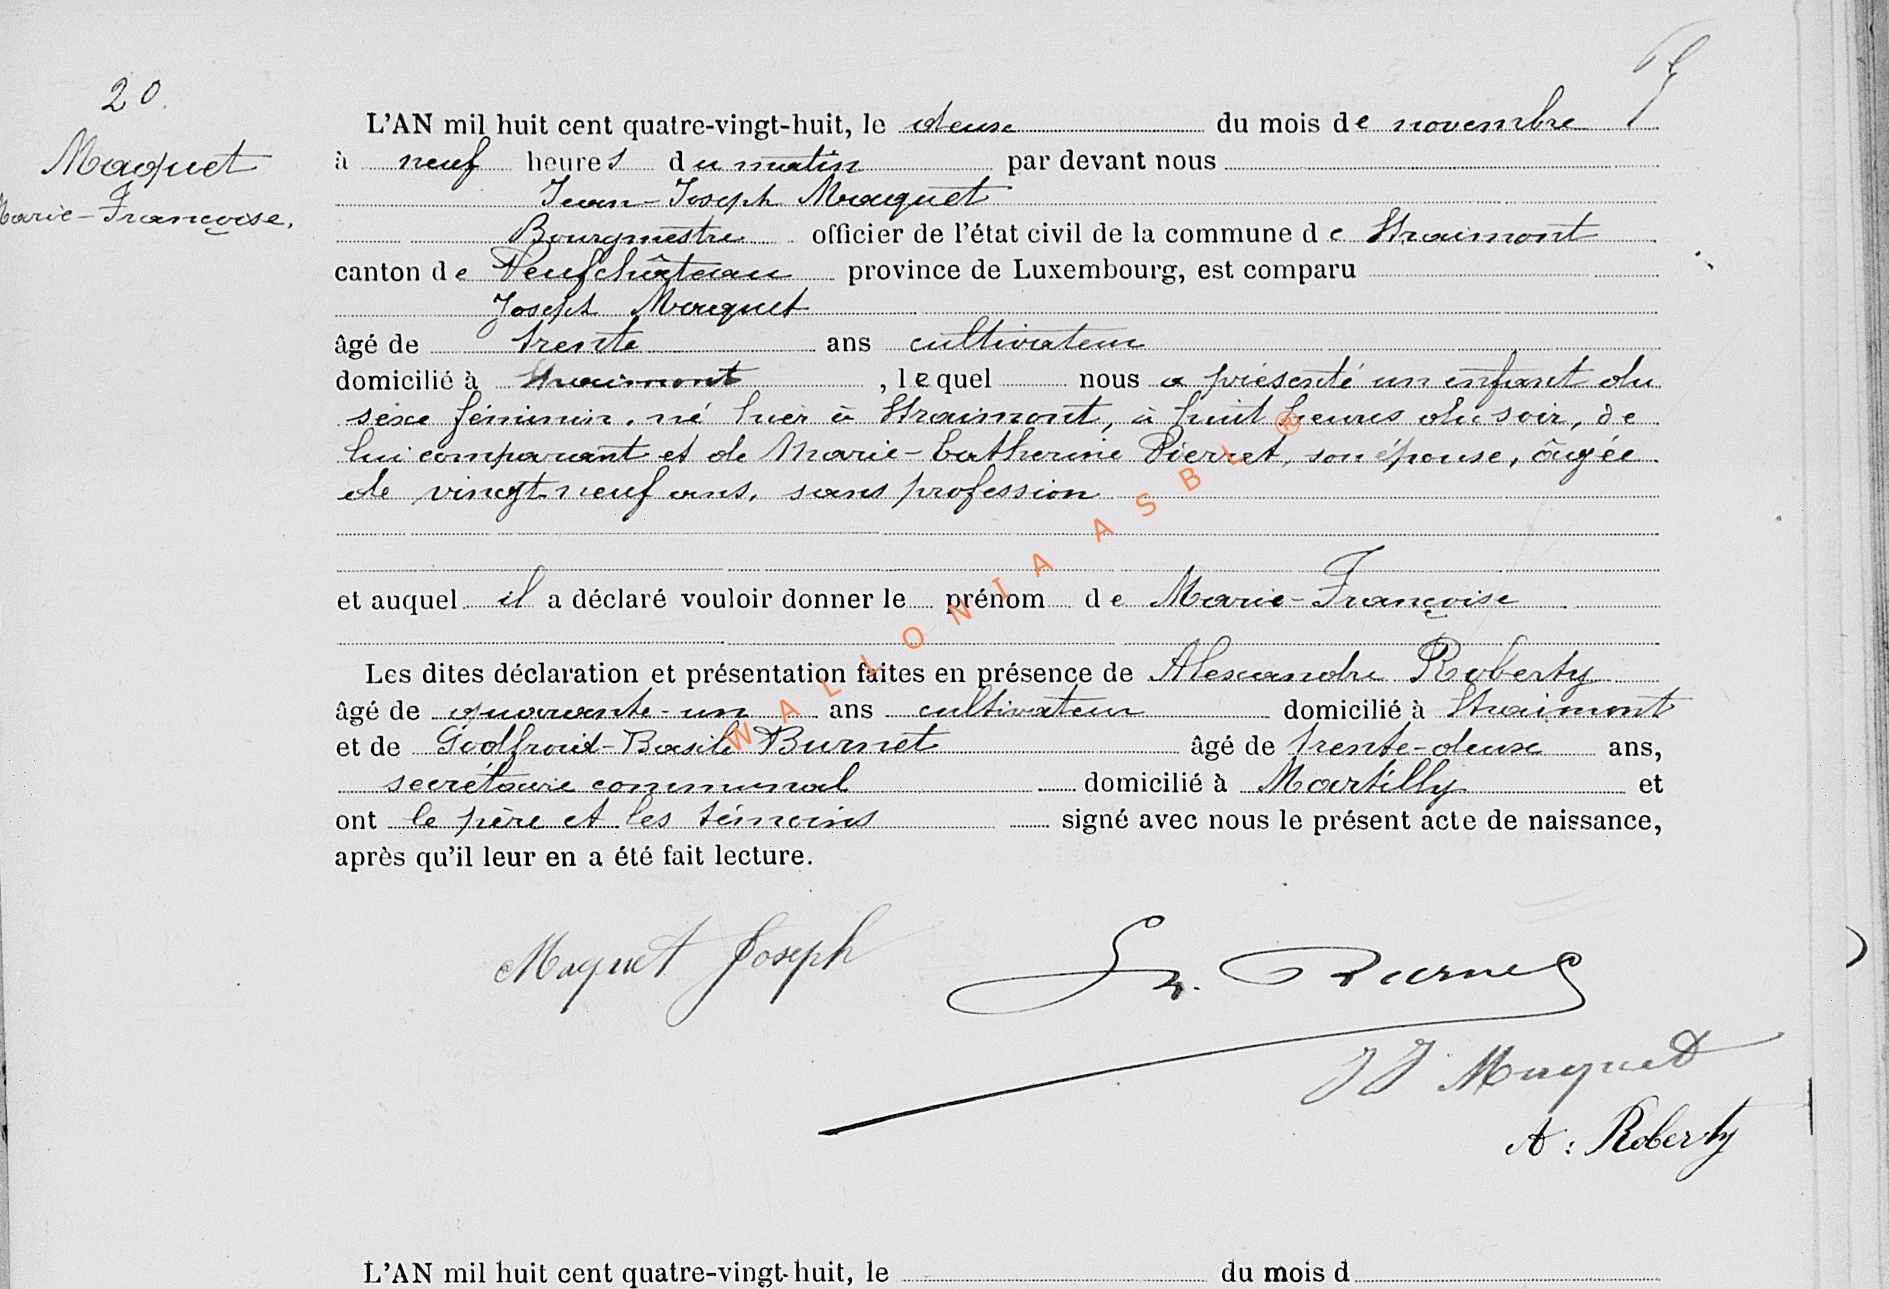 20.
Maquet
Marie-Françoise.
L'AN mil huit cent quatre-vingt-huit, le deux du mois de novembre
à neuf heures du matin par devant nous
Jean-Joseph Maquet
Bourgmestre officier de l'état civil de la commune de Straimont
canton de Neufchâteau province de Luxembourg, est comparu
Joseph Maquet
âgé de trente ans cultivateur
domicilié à Straimont, lequel nous a présenté un enfant du
sexe féminin, né hier à Straimont, à huit heures du soir, de
lui comparant et de Marie-Catherine Pierret, son épouse, âgée
de vingt-neuf ans, sans profession
et auquel il a déclaré vouloir donner le prénom de Marie-Françoise
Les dites déclaration et présentation faites en présence de Alexandre Roberty
âgé de quarante-un ans cultivateur domicilié à Straimont
et de Godfroid-Basile Burnet âgé de trente-deux ans,
secrétaire communal domicilié à Martilly et
ont le père et les témoins signé avec nous le présent acte de naissance,
après qu'il leur en a été fait lecture.
Maquet Joseph
Burnet
JJ Maquet
A: Roberty
L'AN mil huit cent quatre-vingt-huit, le du mois d
WALLONIA ASBL ®